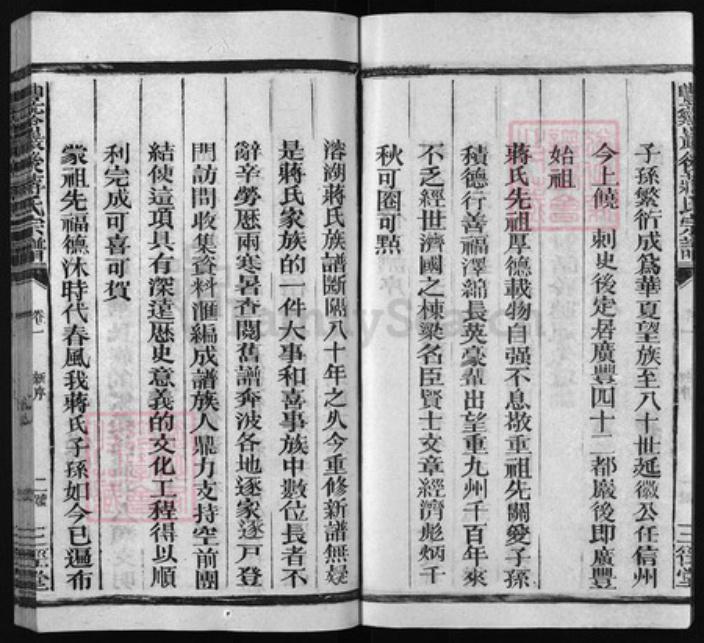 子孫繁衍成爲華夏望族至八十世延徽公任信州
今上饒 刺史後定居廣豐四十二都巖後即廣豐
始祖
蔣氏先祖厚德載物自强不息敬重祖先關愛子孫
積德行善福澤綿長英豪輩出望重九州千百年來
不乏經世濟國之棟樑名臣賢士文章經濟彪炳千
秋可圈可點
溶湖蔣氏族譜斷隔八十年之久今重修新譜無疑
是蔣氏家族的一件大事和喜事族中數位長者不
辭辛勞歷兩寒暑查閱舊譜奔波各地逐家逐戸登
門訪問收集資料匯編成譜族人鼎力支持空前團
結使這項具有深遠歷史意義的文化工程得以順
利完成可喜可賀
蒙祖先福德沐時代春風我蔣氏子孫如今已遍布
巖後蔣氏宗譜
卷一
新序
二
三徑堂
FamilySearch